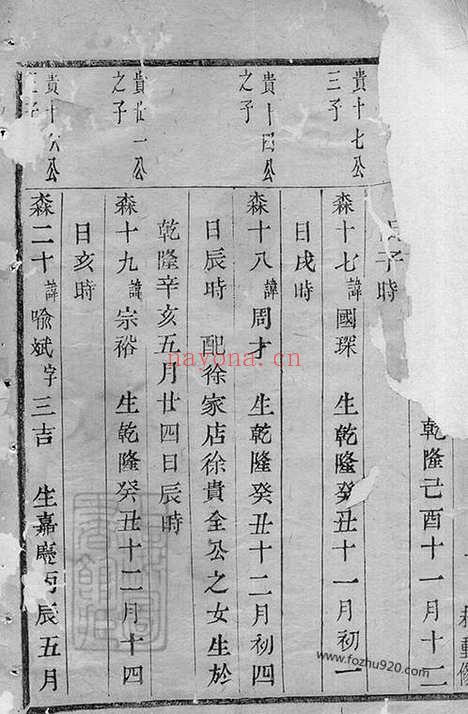 乾隆己酉十一月十二
日子時
貴十七公
三子
森十七諱國琛 生乾隆癸丑十一月初一
日戌時
貴十四公
之子
森十八諱周才 生乾隆癸丑十二月初四
日辰時 配徐家店徐貴全公之女生於
乾隆辛亥五月廿四日辰時
貴廿一公
之子
森十九諱宗裕 生乾隆癸丑十二月十四
日亥時
貴十六公
森二十諱喩斌字三吉 生嘉慶丙辰五月
nayona.cn
www.fozhu920.com